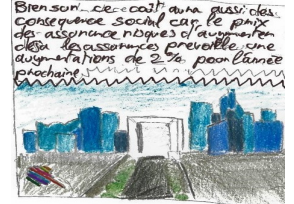 Bien sur ce coût aura aussi des
consequence social car le prix
des assurance risques d'augmenter
déja les assurances prevoille une
augmentations de 2% pour l'année
prochaine